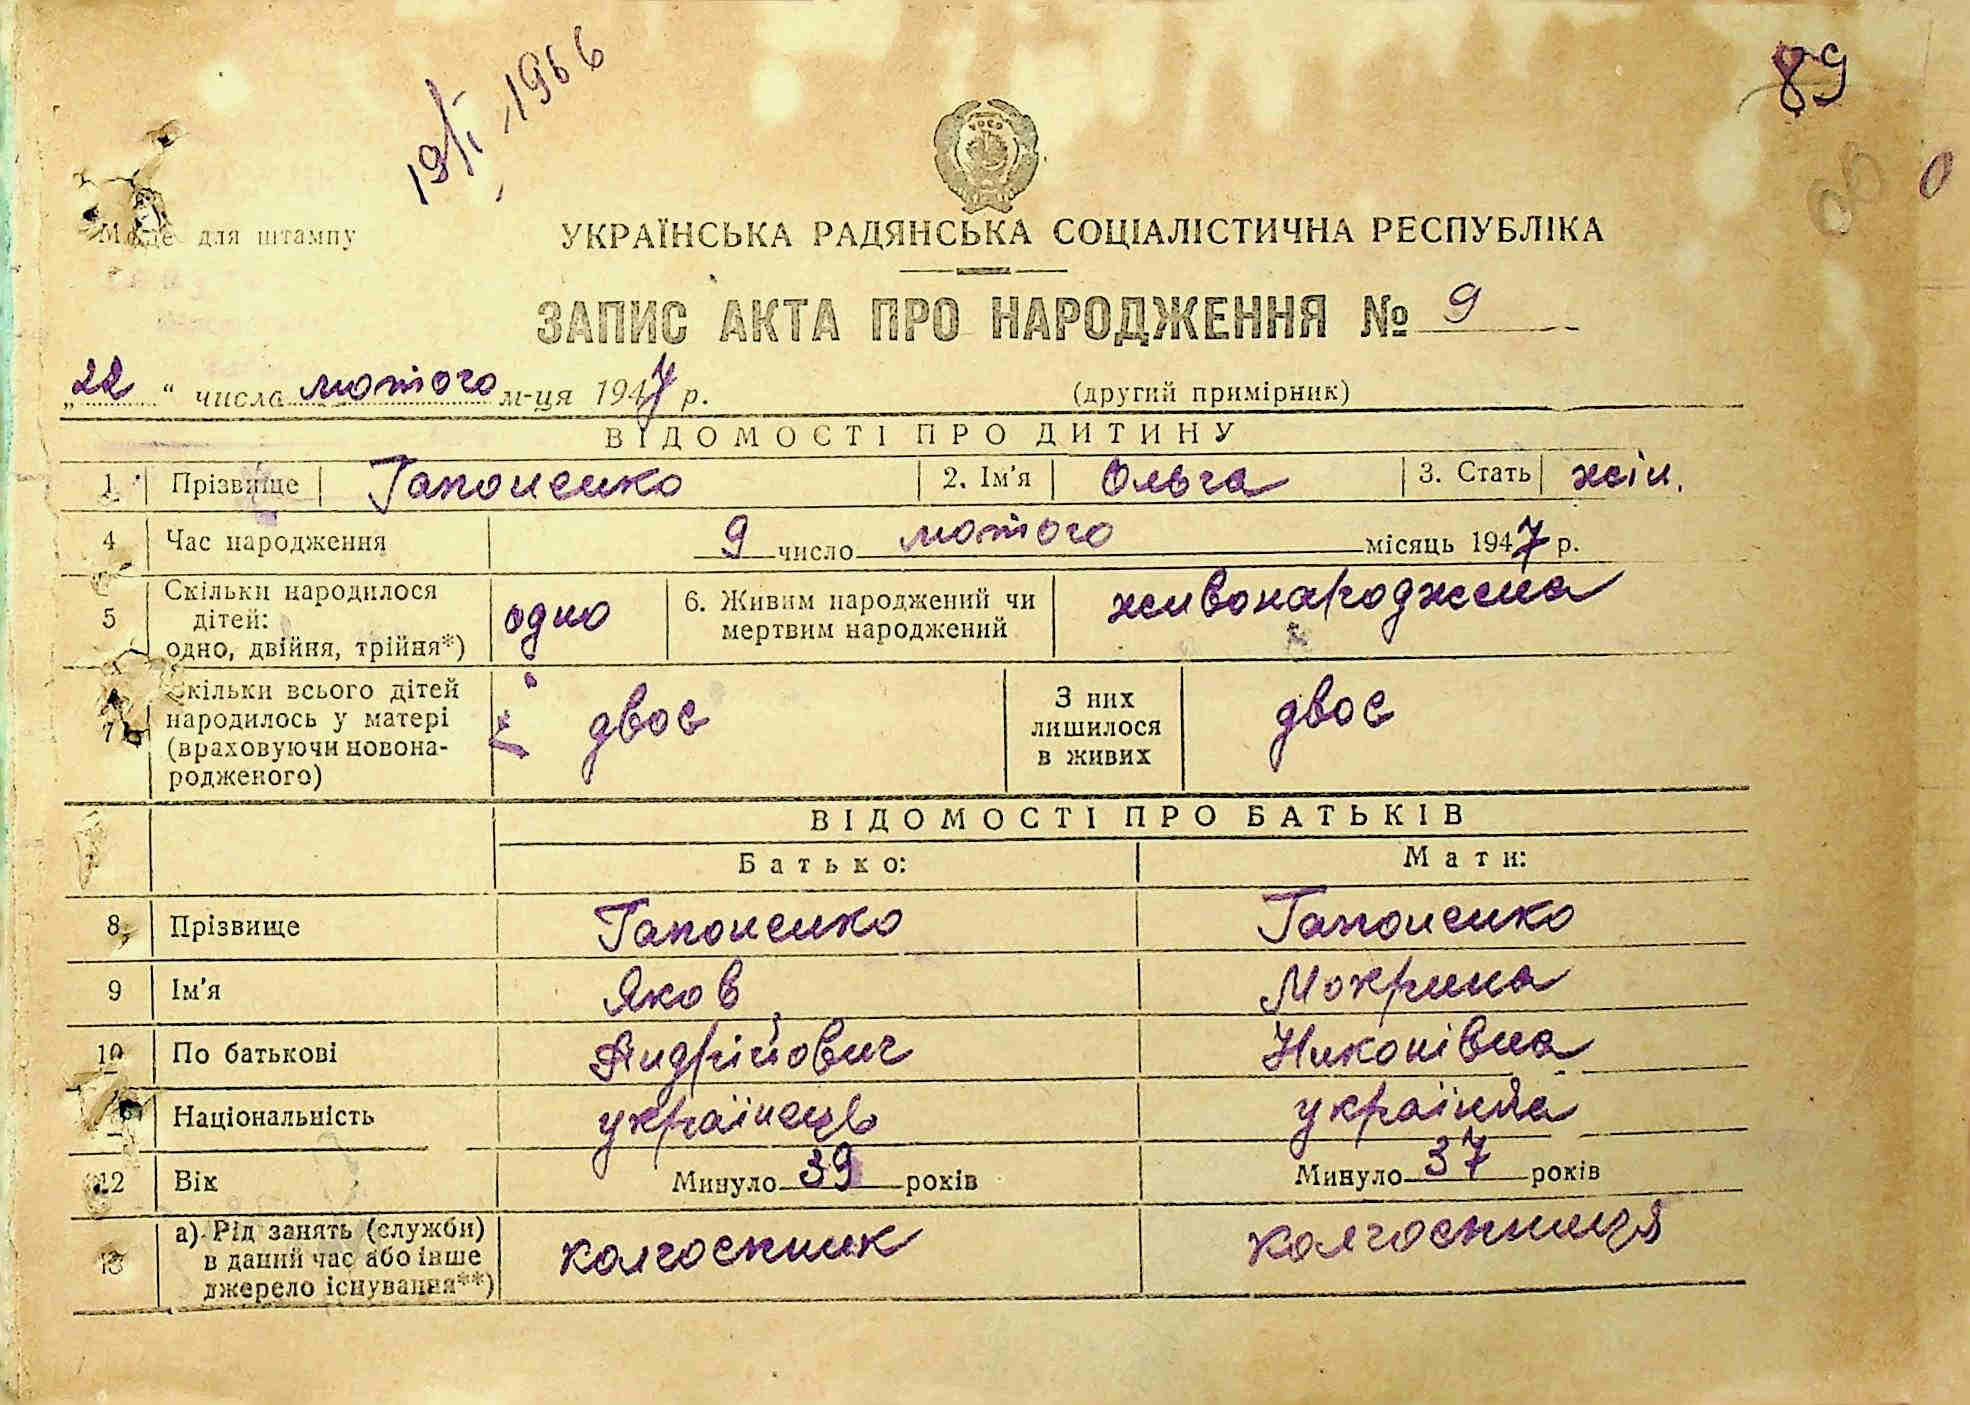 19/I 1966
89
Місце для штампу
УКРАЇНСЬКА РАДЯНСЬКА СОЦІАЛІСТИЧНА РЕСПУБЛІКА
ЗАПИС АКТА ПРО НАРОДЖЕННЯ № 9
„22“ числа лютого м-ця 1947 р. (другий примірник)
ВІДОМОСТІ ПРО ДИТИНУ
1 Прізвище Гапоненко 2. Ім'я Ольга 3. Стать жін.
4 Час народження 9 число лютого місяць 1947 р.
5 Скільки народилося дітей: одно, двійня, трійня*) одно 6. Живим народжений чи мертвим народжений живонароджена
7 Скільки всього дітей народилось у матері (враховуючи новонародженого) двоє З них лишилося в живих двоє
ВІДОМОСТІ ПРО БАТЬКІВ
Батько: Мати:
8 Прізвище Гапоненко Гапоненко
9 Ім'я Яков Мокрина
10 По батькові Андрійович Никонівна
Національність українець українка
12 Вік Минуло 39 років Минуло 37 років
13 а) Рід занять (служби) в даний час або інше джерело існування**) колгоспник колгоспниця